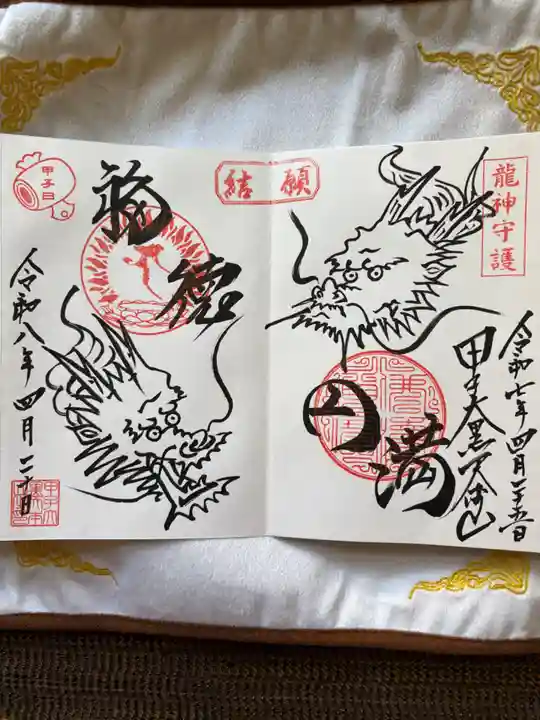 龍神守護
令和七年四月二十五日
甲子大黒天本山
円満
結願
福徳
甲子日
令和八年四月二十日